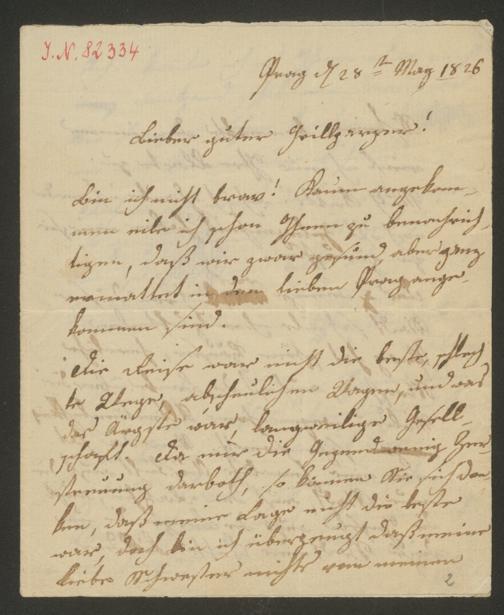 I. N. 82334
Prag d 28ten May 1826
Lieber guter Grillparzer!
Bin ich nicht brav! Kaum angekom-
men eile ich schon Ihnen zu benachrich-
tigen, daß wir zwar gesund, aber ganz
ermattet in dem lieben Prag ange-
kommen sind.
Die Reise war nicht die beste, schlech-
te Wege, abscheulichen Wagen, und was
das Ärgste war langweilige Gesell-
schaft. Da mir die Gegend wenig Zer-
streuung darboth, so können Sie sich den-
ken, daß meine Lage nicht die beste
war, doch bin ich überzeugt daß meine
liebe Schwester nichts von meinem
2